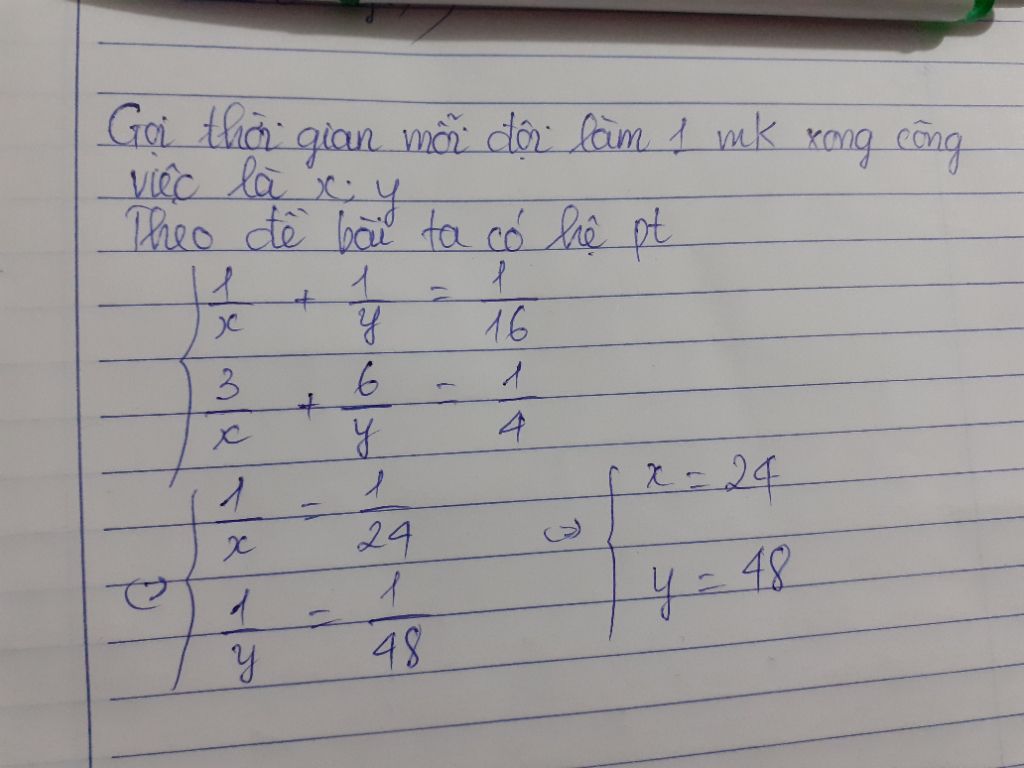 Gọi thời gian mỗi đội làm 1 mk xong công
việc là x; y
Theo đề bài ta có hệ pt
{ 1/x + 1/y = 1/16
3/x + 6/y = 1/4
(=) { 1/x = 1/24
1/y = 1/48
(=) { x = 24
y = 48